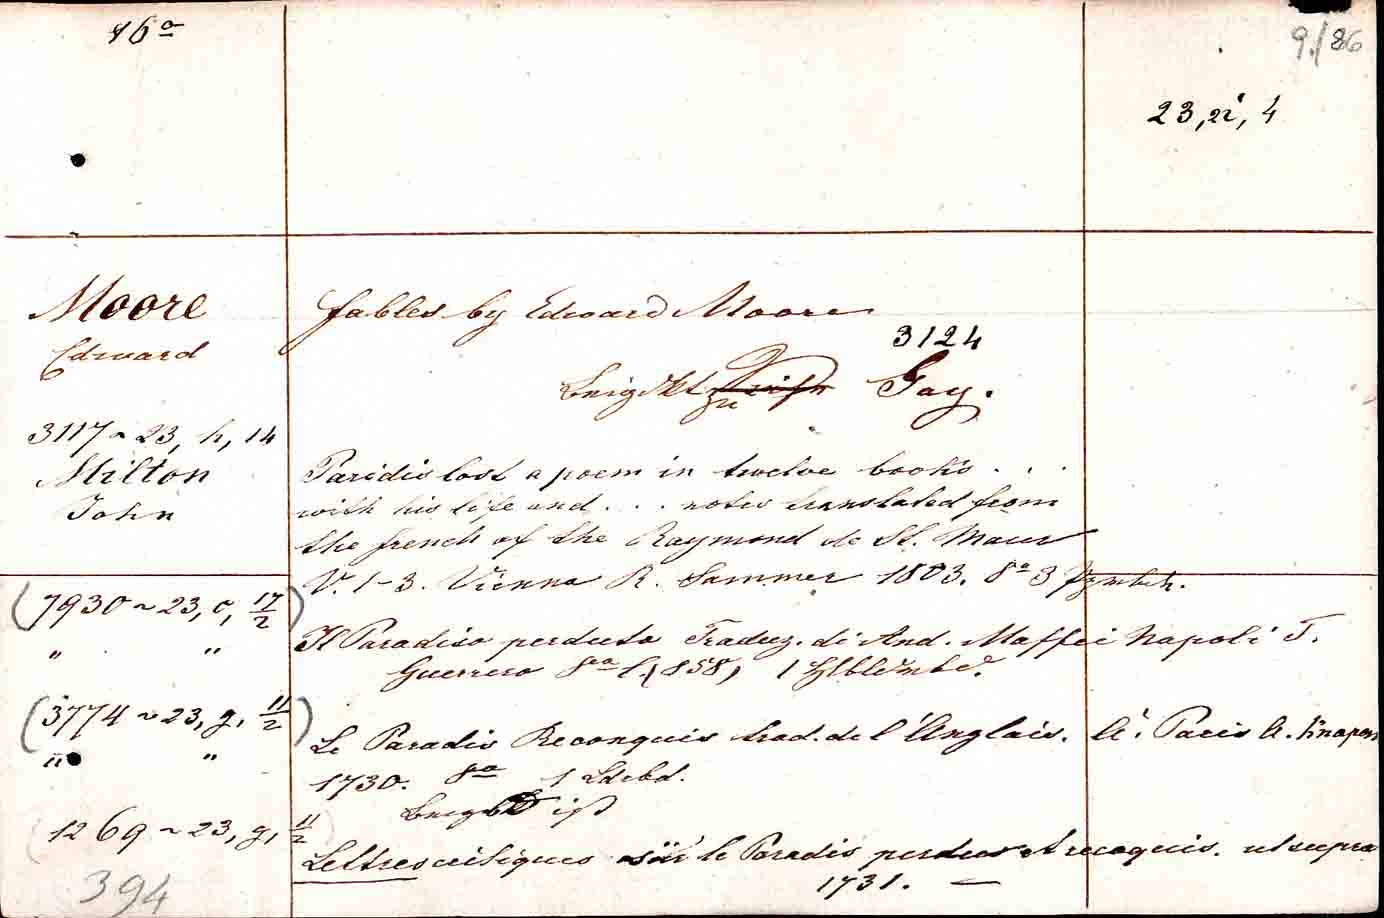 16º
9./86
23, 4
Moore
Edward
fables by Edward Moore
3124
zu Gay.
3117 ~ 23, h, 14
Milton
John
Paridis lost a poem in twelve books . . .
with his life and . . . notes translated from
the french of the Raymond de St. Maur
V. 1-3. Vienna R. Sammer 1803. 8º 3
(7930 ~ 23, o, 17/2)
" "
Il Paradiso perduto Traduz. di And. Maffei Napoli T.
Guerrero 8º 1858, 1
(3774 ~ 23, g, 11/2)
" "
Le Paradis Reconquis trad. de l'Anglais. à Paris
1730. 8º 1 Ldrbd.
ist
(1269 ~ 23, g, 11/2
Lettres critiques sür le Paradis perdu et reconquis. ut supra
1731. —
394